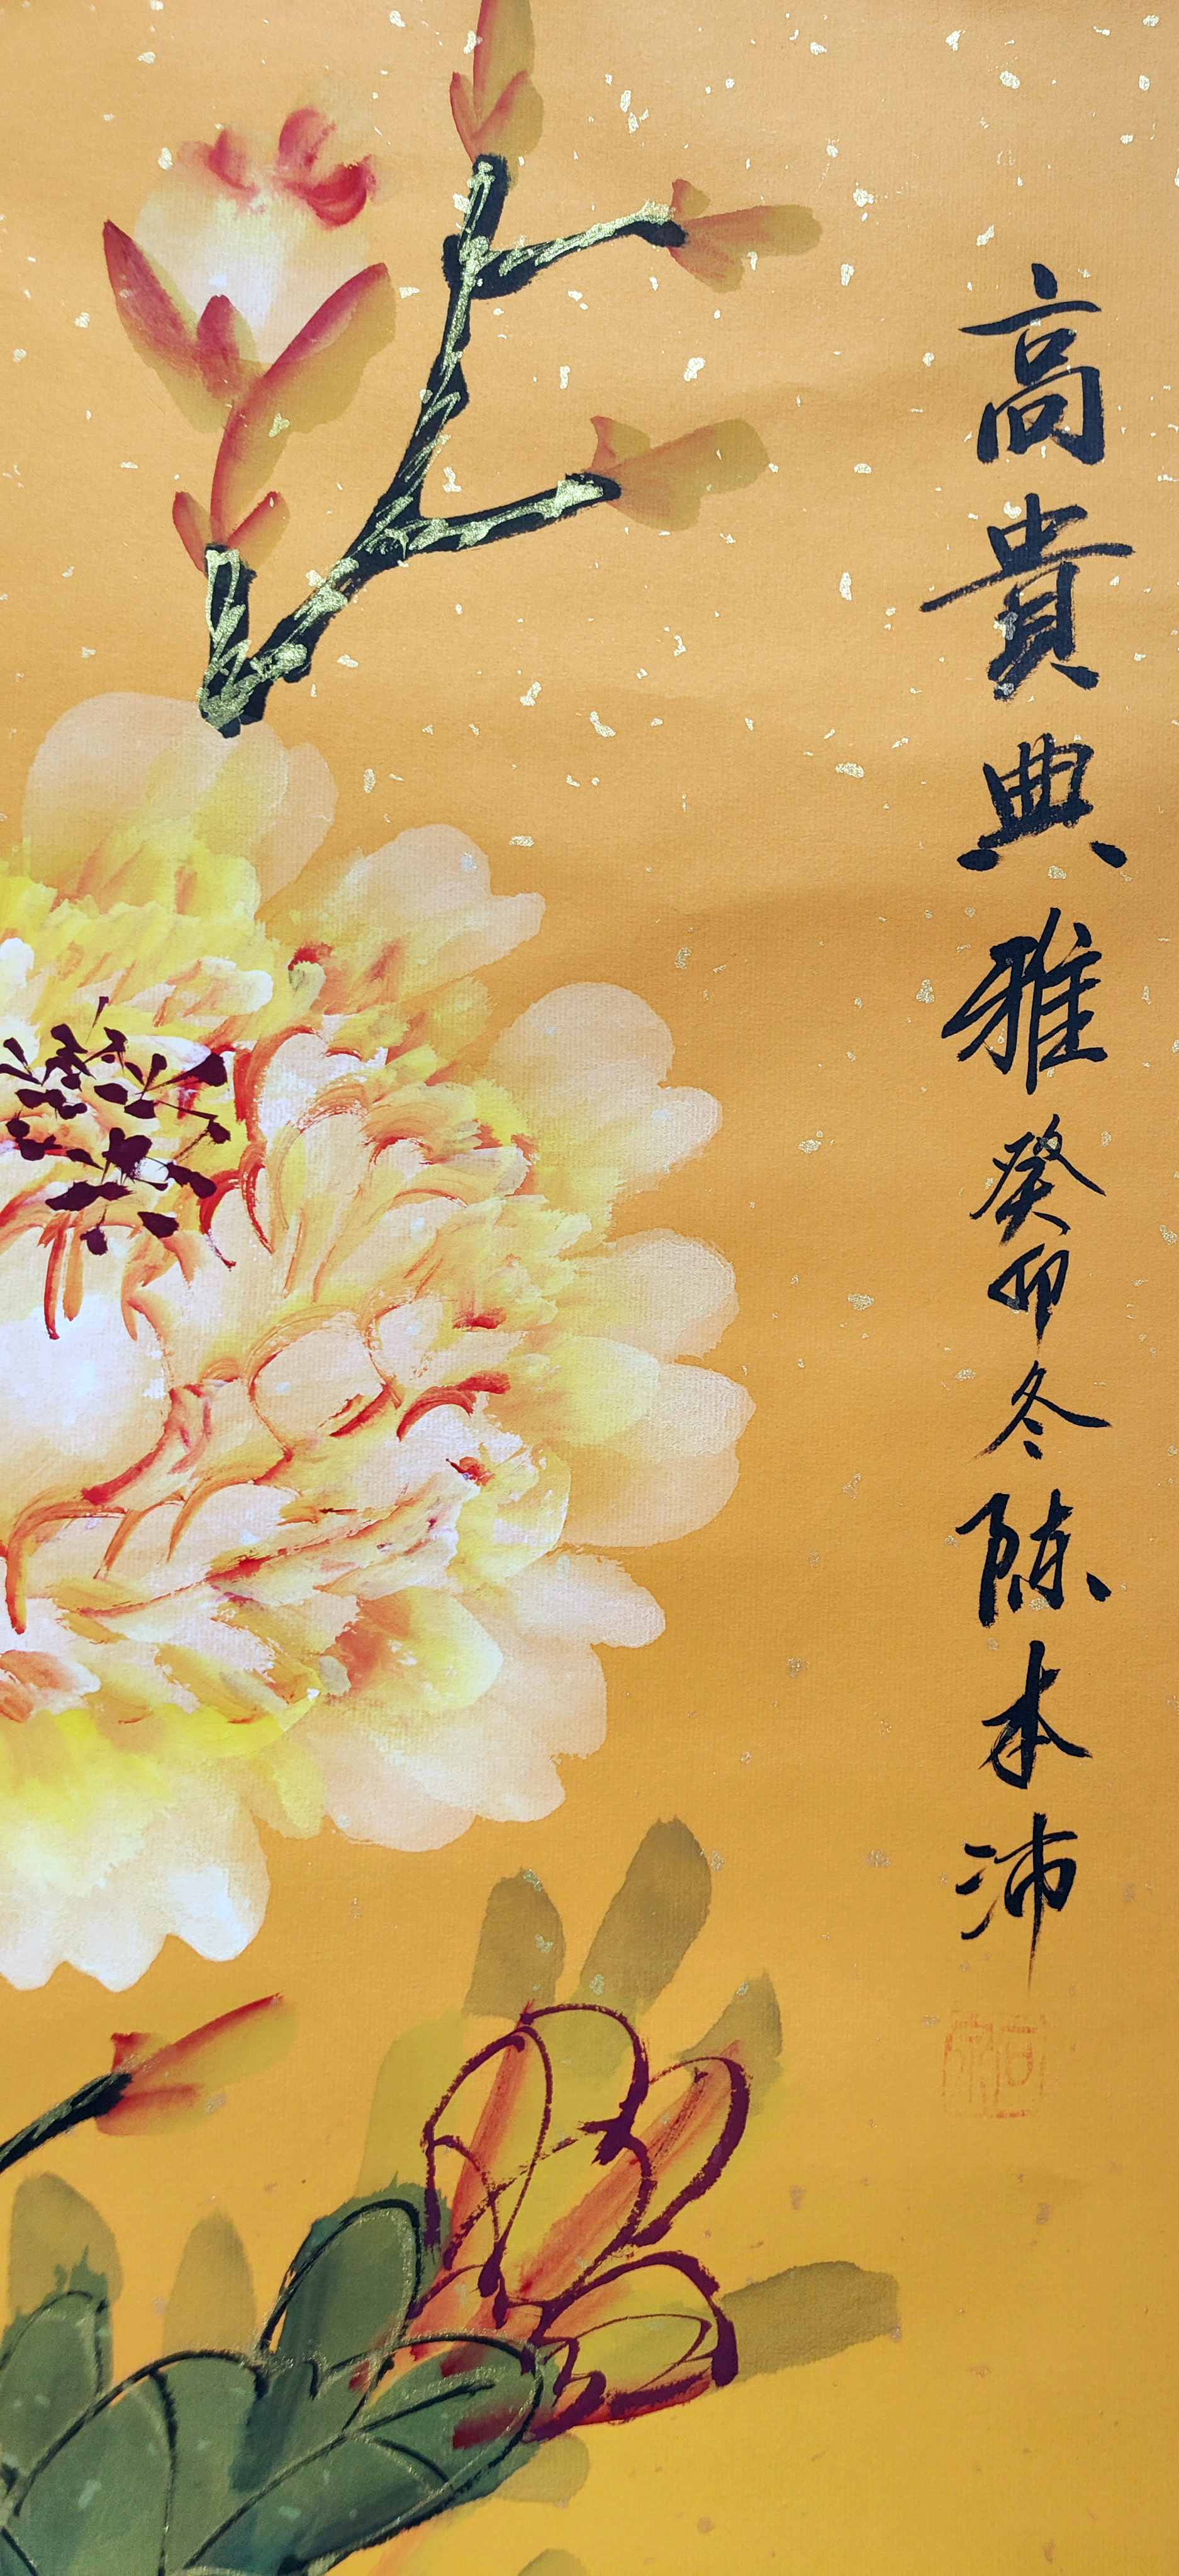 高貴典雅癸卯冬陈本沛